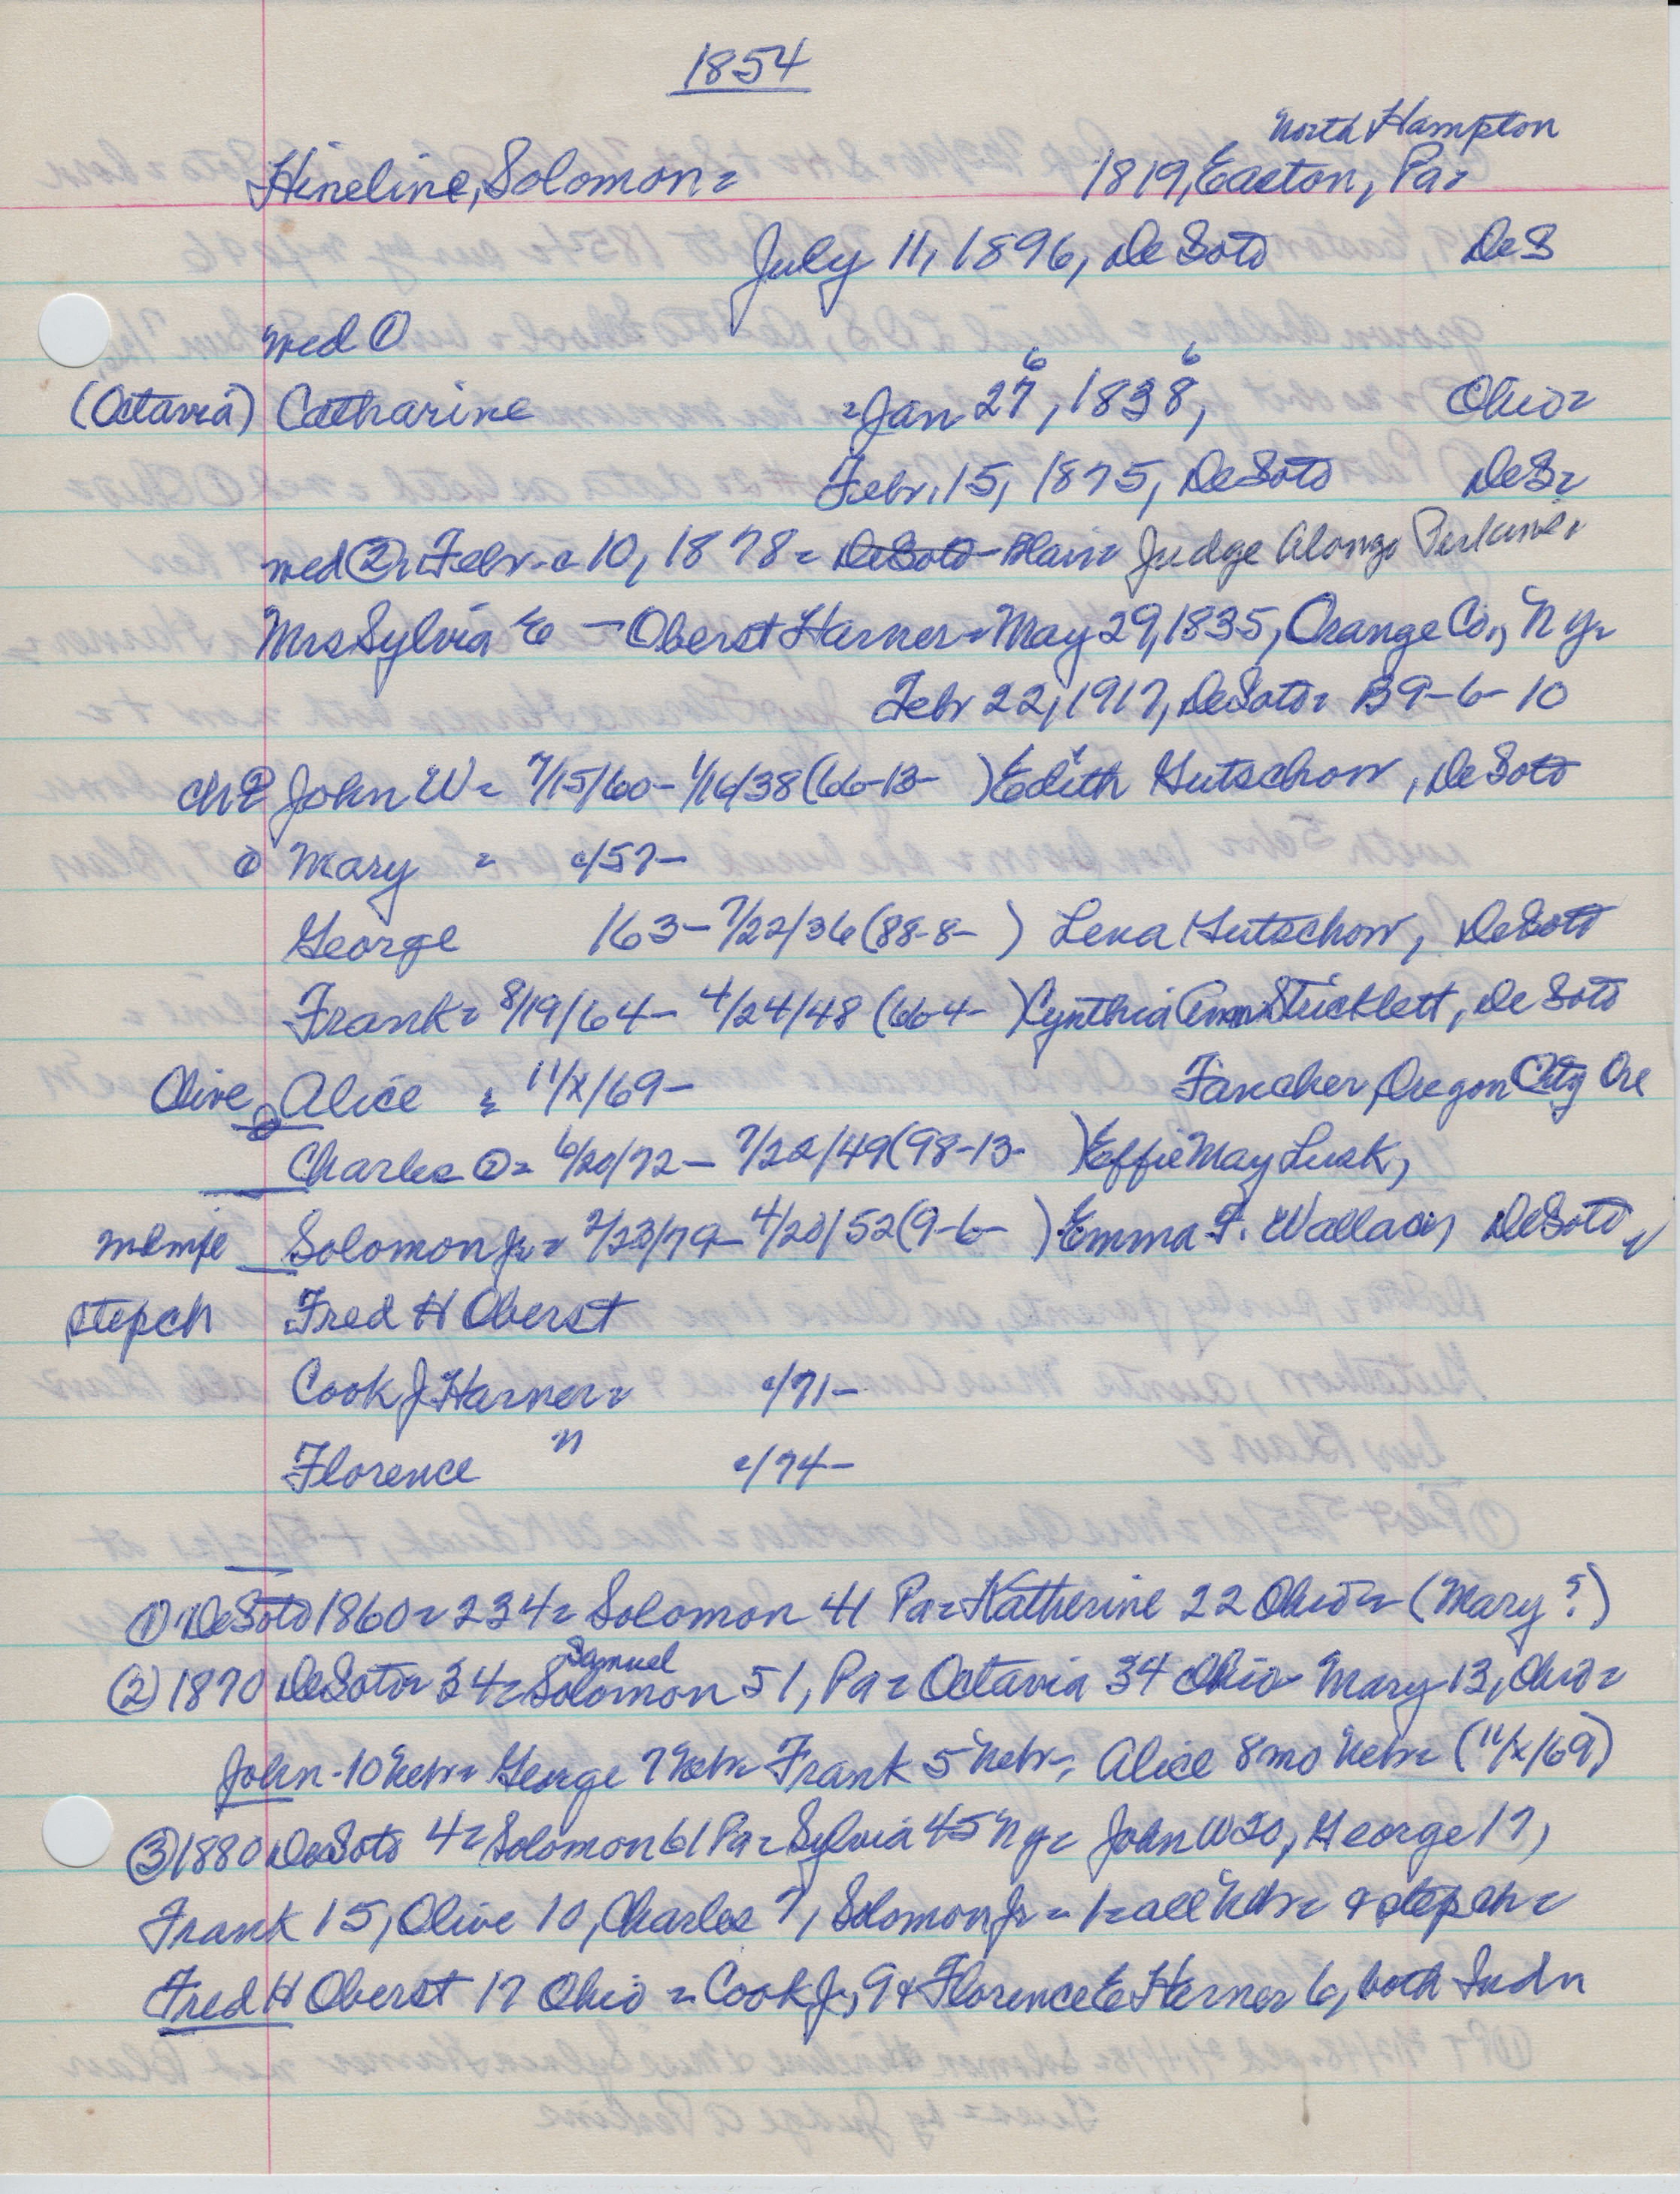 1854
North Hampton
Hineline, Solomon = 1819, Easton, Pa=
July 11, 1896, DeSoto DeS
med ①
6 6
(Octavia) Catharine = Jan 27, 1838, Ohio=
Febr. 15, 1875, DeSoto DeS=
med ②, Febr. c 10, 1878 = DeSoto - Blair= Judge Alonzo Perkins
Mrs Sylvia E — Oberst Harner = May 29, 1835, Orange Co., N y=
Febr 22, 1917, DeSoto= B9-6-10
ch John W = 7/15/60 - 1/16/38 (66-13- ) Edith Gutschow, DeSoto
① Mary = c/57-
George /63 - 7/22/36 (88-8- ) Lena Gutschow, DeSoto
Frank = 8/19/64 - 4/24/48 (66-4- ) Cynthia Ann Stricklett, DeSoto
Olive Alice = 11/x/69- Fancher, Oregon City Ore
Charles O = 6/20/72 - 7/22/49 (98-13- ) Effie May Lusk,
Solomon Jr = 2/23/79 - 4/20/52 (9-6- ) Emma F. Wallace, DeSoto
stepch Fred H Oberst
Cook J Harner = c/71-
Florence " c/74-
① DeSoto 1860= 234= Solomon 41 Pa= Katherine 22 Ohio= (Mary?)
Samuel
② 1870 DeSoto= 34= Solomon 51, Pa= Octavia 34 Ohio- Mary 13, Ohio=
John-10 Nebr= George 7 Nebr= Frank 5 Nebr=, Alice 8 mo Nebr= (11/x/69)
③ 1880 DeSoto 4= Solomon 61 Pa= Sylvia 45 Ny= John W 20, George 17,
Frank 15, Olive 10, Charles 7, Solomon Jr = 1= all Nebr= & stepch=
Fred H Oberst 17 Ohio = Cook J, 9 & Florence E Harner 6, both Indn